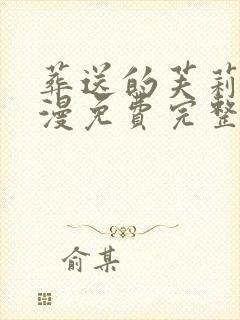 葬送的芙莉
漫免費完整
俞某